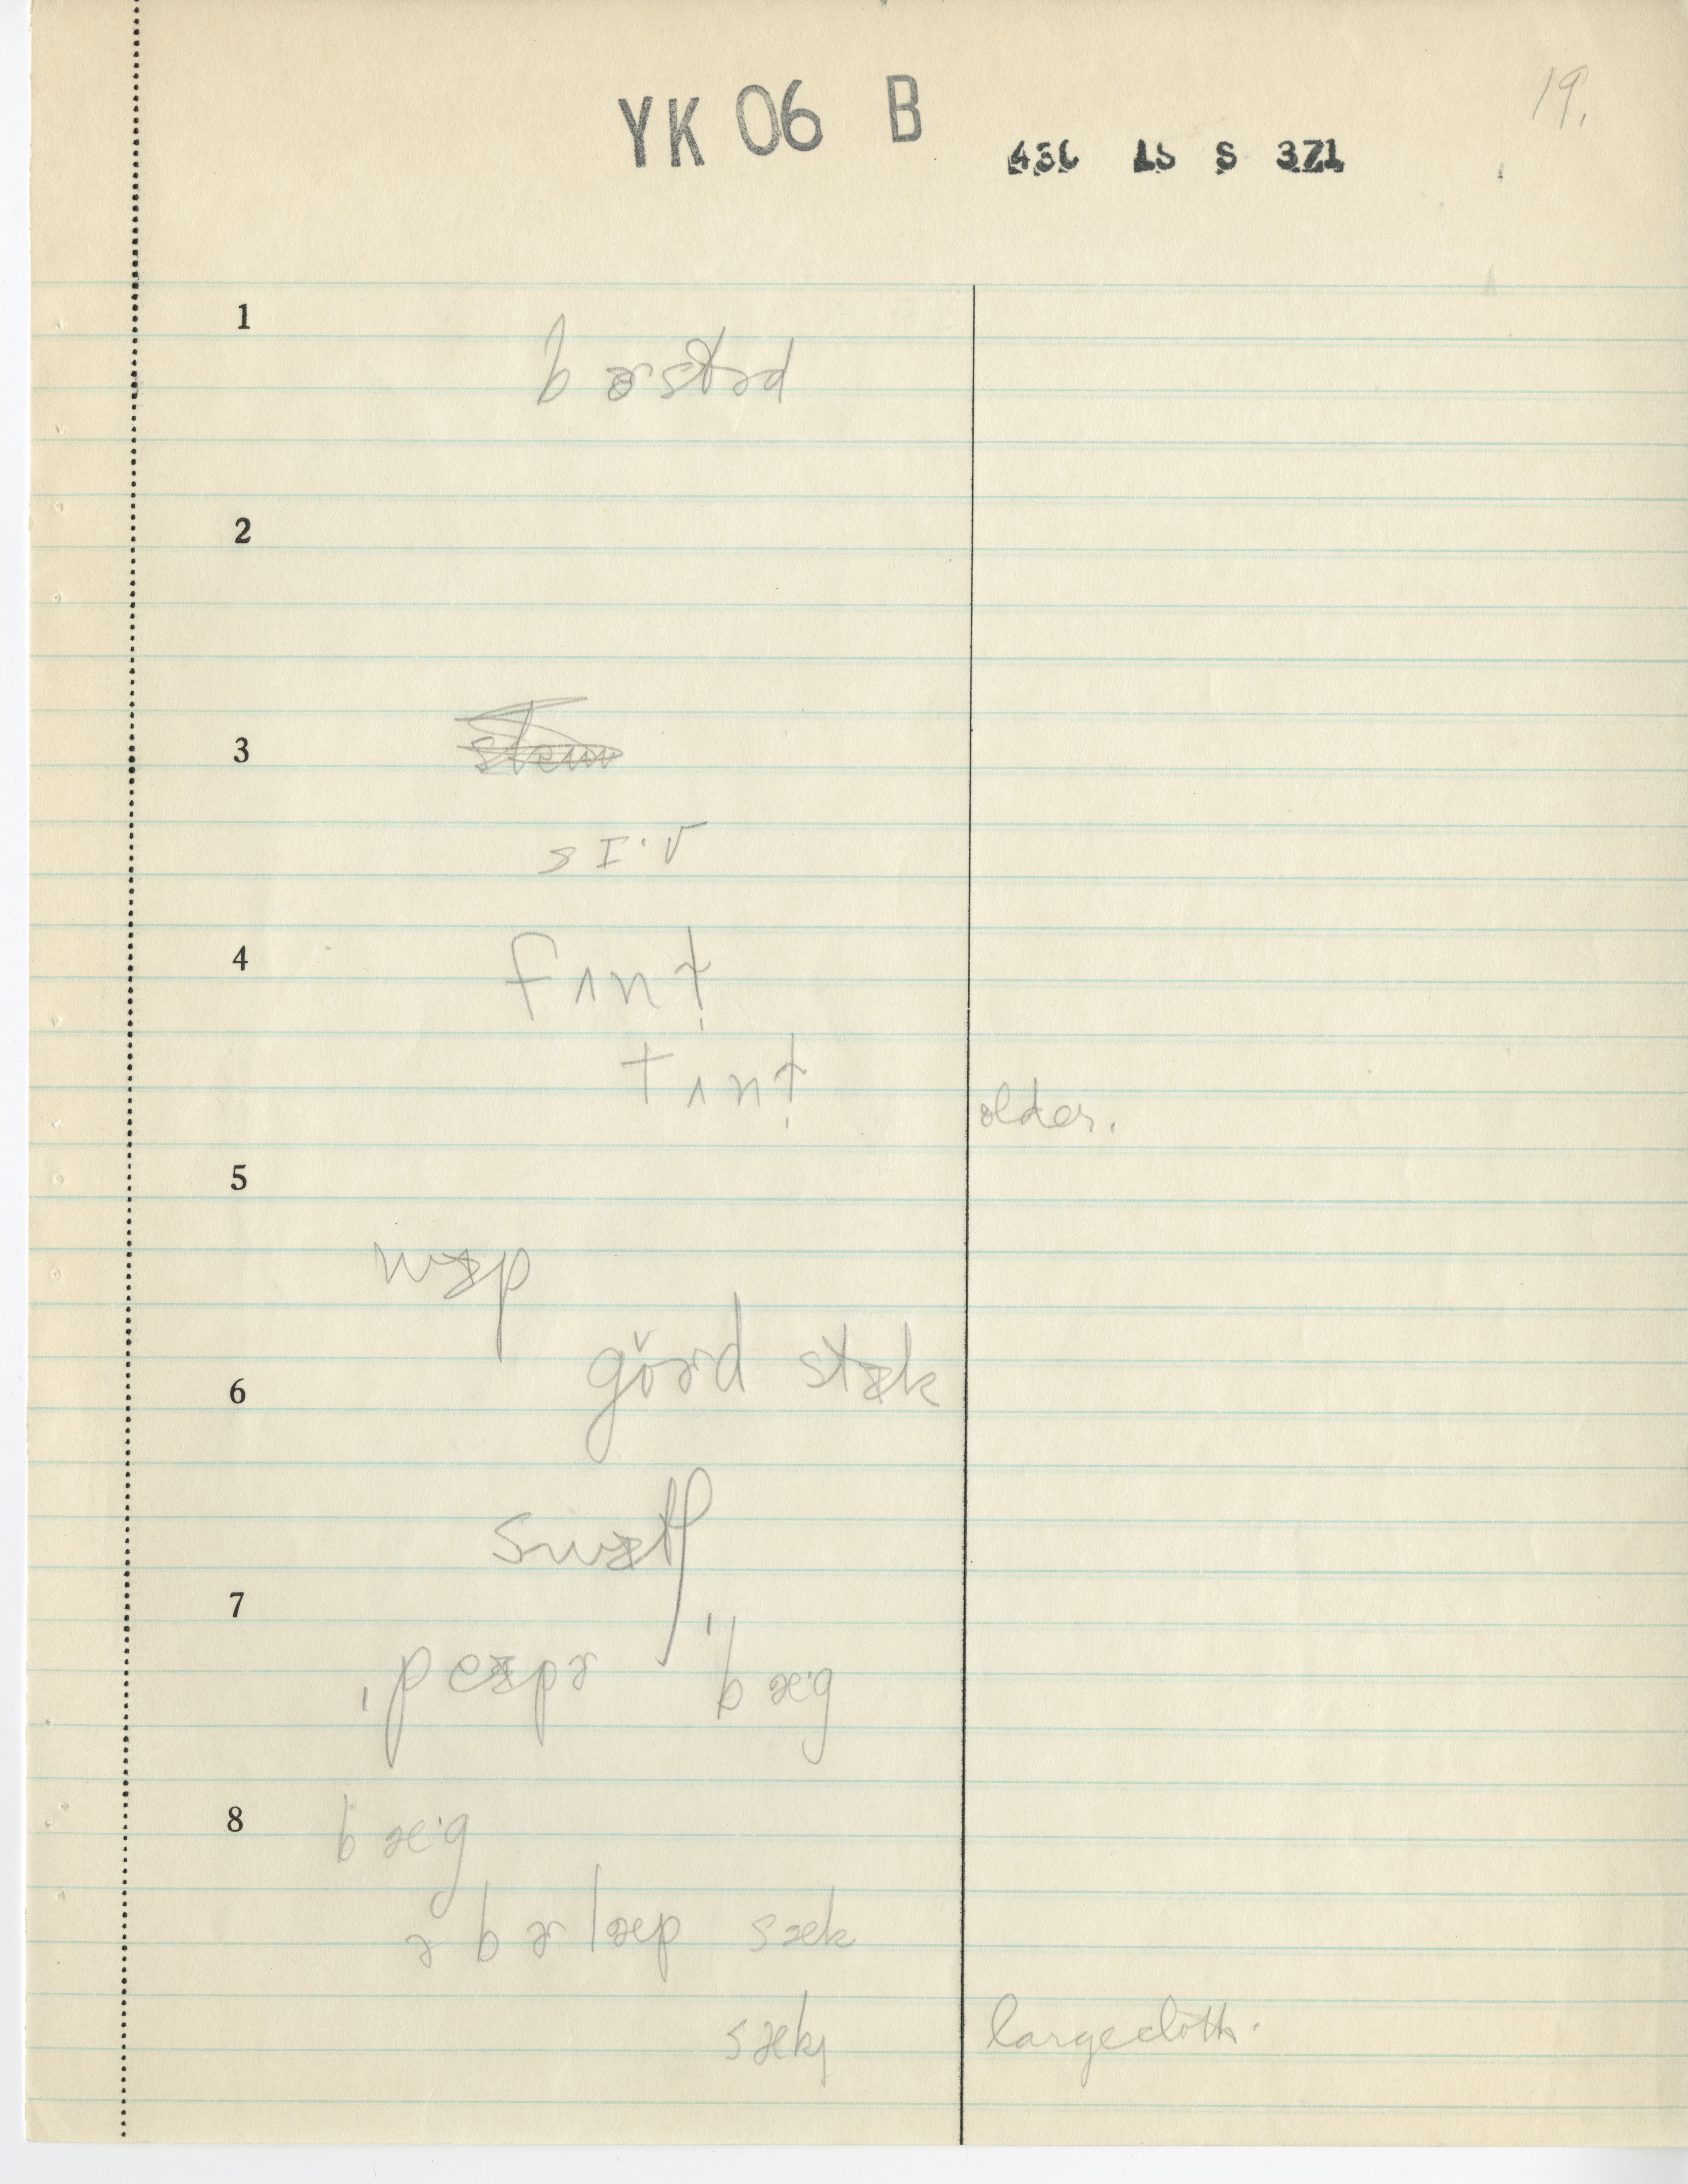 YK 06 B
19.
436 15 S 371
1
bɚstəd
2
3
sɪ·v
4
fʌnt̩
tʌnt̩
older.
5
wɪp
6
gŏɚd stɪk
swɪtʃ
7
ˌpeɪpɚ ˈbæ·g
8
bæ·g
ə bɚlæp sæk
sæk
large cloth.